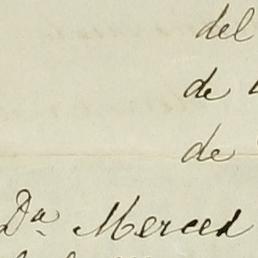 del
de
de
Da. Merced